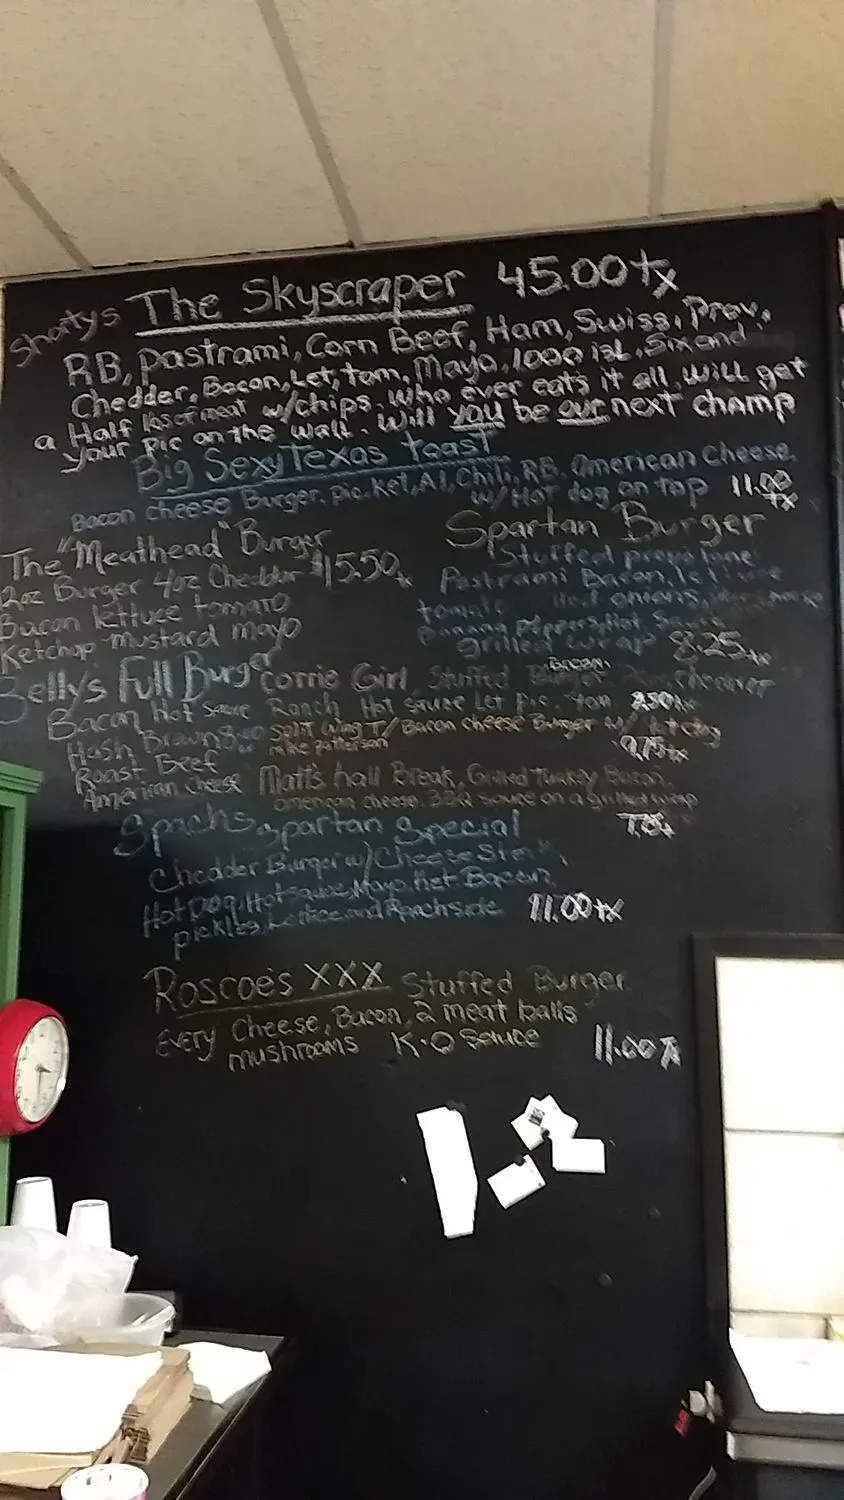 Shortys The Skyscraper 45.00 tx
RB, Pastrami, Corn Beef, Ham, Swiss, Prov,
Chedder, Bacon, Let, tom, Mayo, 1000 isl, Six and
a Half lbs of meat w/chips. Who ever eats it all will get
your pic on the wall. Will you be our next champ
Big Sexy Texas toast
Bacon cheese Burger, Pic, Ket, A1, Chili, RB, American Cheese.
w/ Hot dog on top 11.00 tx
The "Meathead" Burger
12oz Burger 4oz Chedder $15.50 tx
Bacon lettuce tomato
Ketchup mustard mayo
Spartan Burger
Stuffed provolone
Pastrami Bacon, let
tomato onions,
Banana Peppers, Hot Sauce
grilled wrap 8.25 tx
Belly's Full Burger
Bacon Hot Sauce
Hash Browns
Roast Beef
American Cheese
Corrie Girl, Stuffed Bacon Burger chedder
Ranch Hot sauce Let pic. tom 8.50 tx
Split Wing T/ Bacon cheese Burger w/ hot dog
mike patterson 9.75 tx
Matt's hall Break, Grilled Turkey, Bacon,
american cheese, BBQ sauce on a grilled wrap
Spachs Spartan Special
Chedder Burger w/ Cheese Steak,
Hot Dog, Hot sauce, Mayo, Ket, Bacon,
pickles, Lettuce, and Ranch side 11.00 tx
Roscoe's XXX Stuffed Burger
Every Cheese, Bacon, 2 meat balls
mushrooms K.O Sauce 11.00 Tx